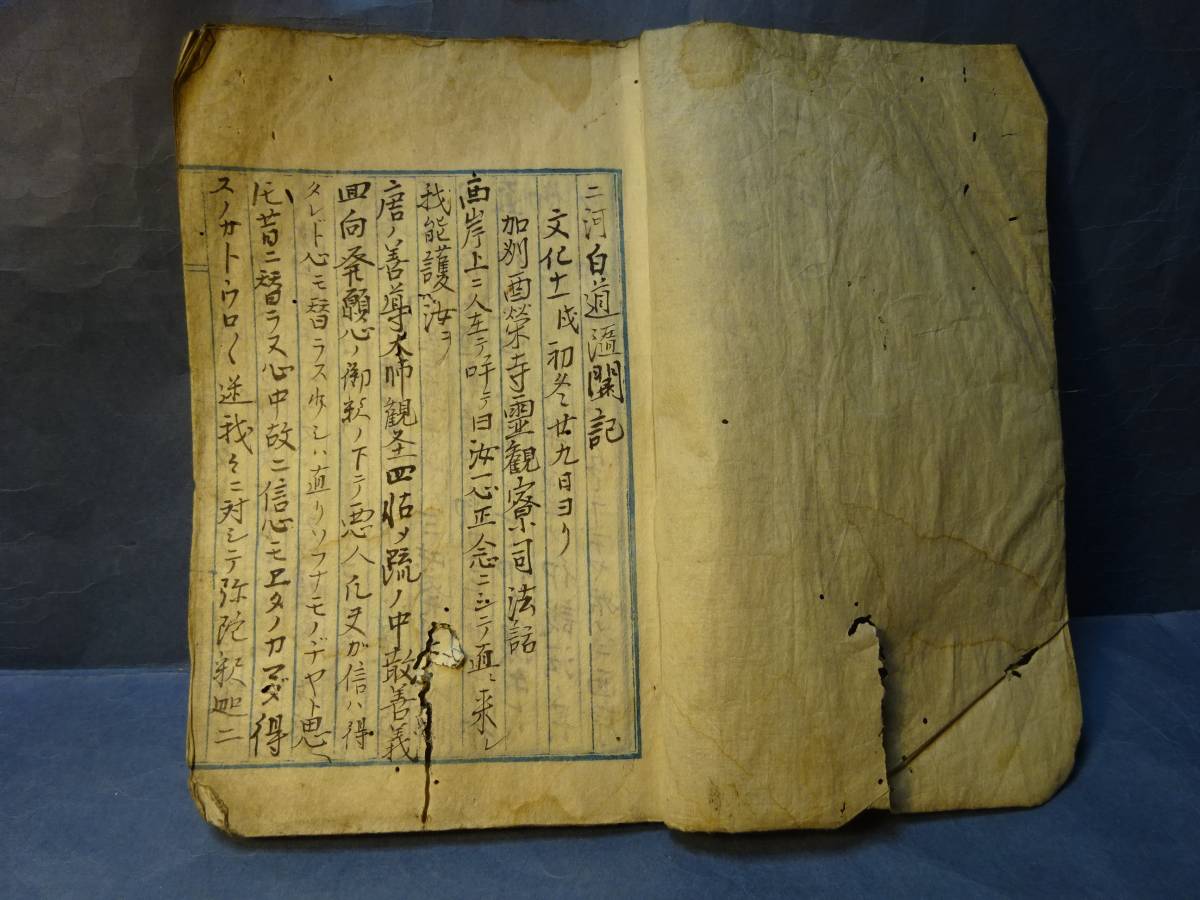 二河白道聞記
文化十一戌初冬廿九日ヨリ
加刕酉榮寺霊觀寮司法話
西岸上ニ人在テ呼テ曰汝一心正念ニシテ直ニ来レ
我能護汝ヲ
唐ノ善導大師觀圣四帖ノ疏ノ中散善義
回向発願心ノ御釈ノ下ニテ悪人凡夫が信ハ得
タレド心モ替ラス直リソフナモノヂヤト思
昔ニ替ラヌ心中故ニ信心モヱタノカマダ得
ヌノカトウロ〱逆我々ニ対シテ弥陀釈迦二